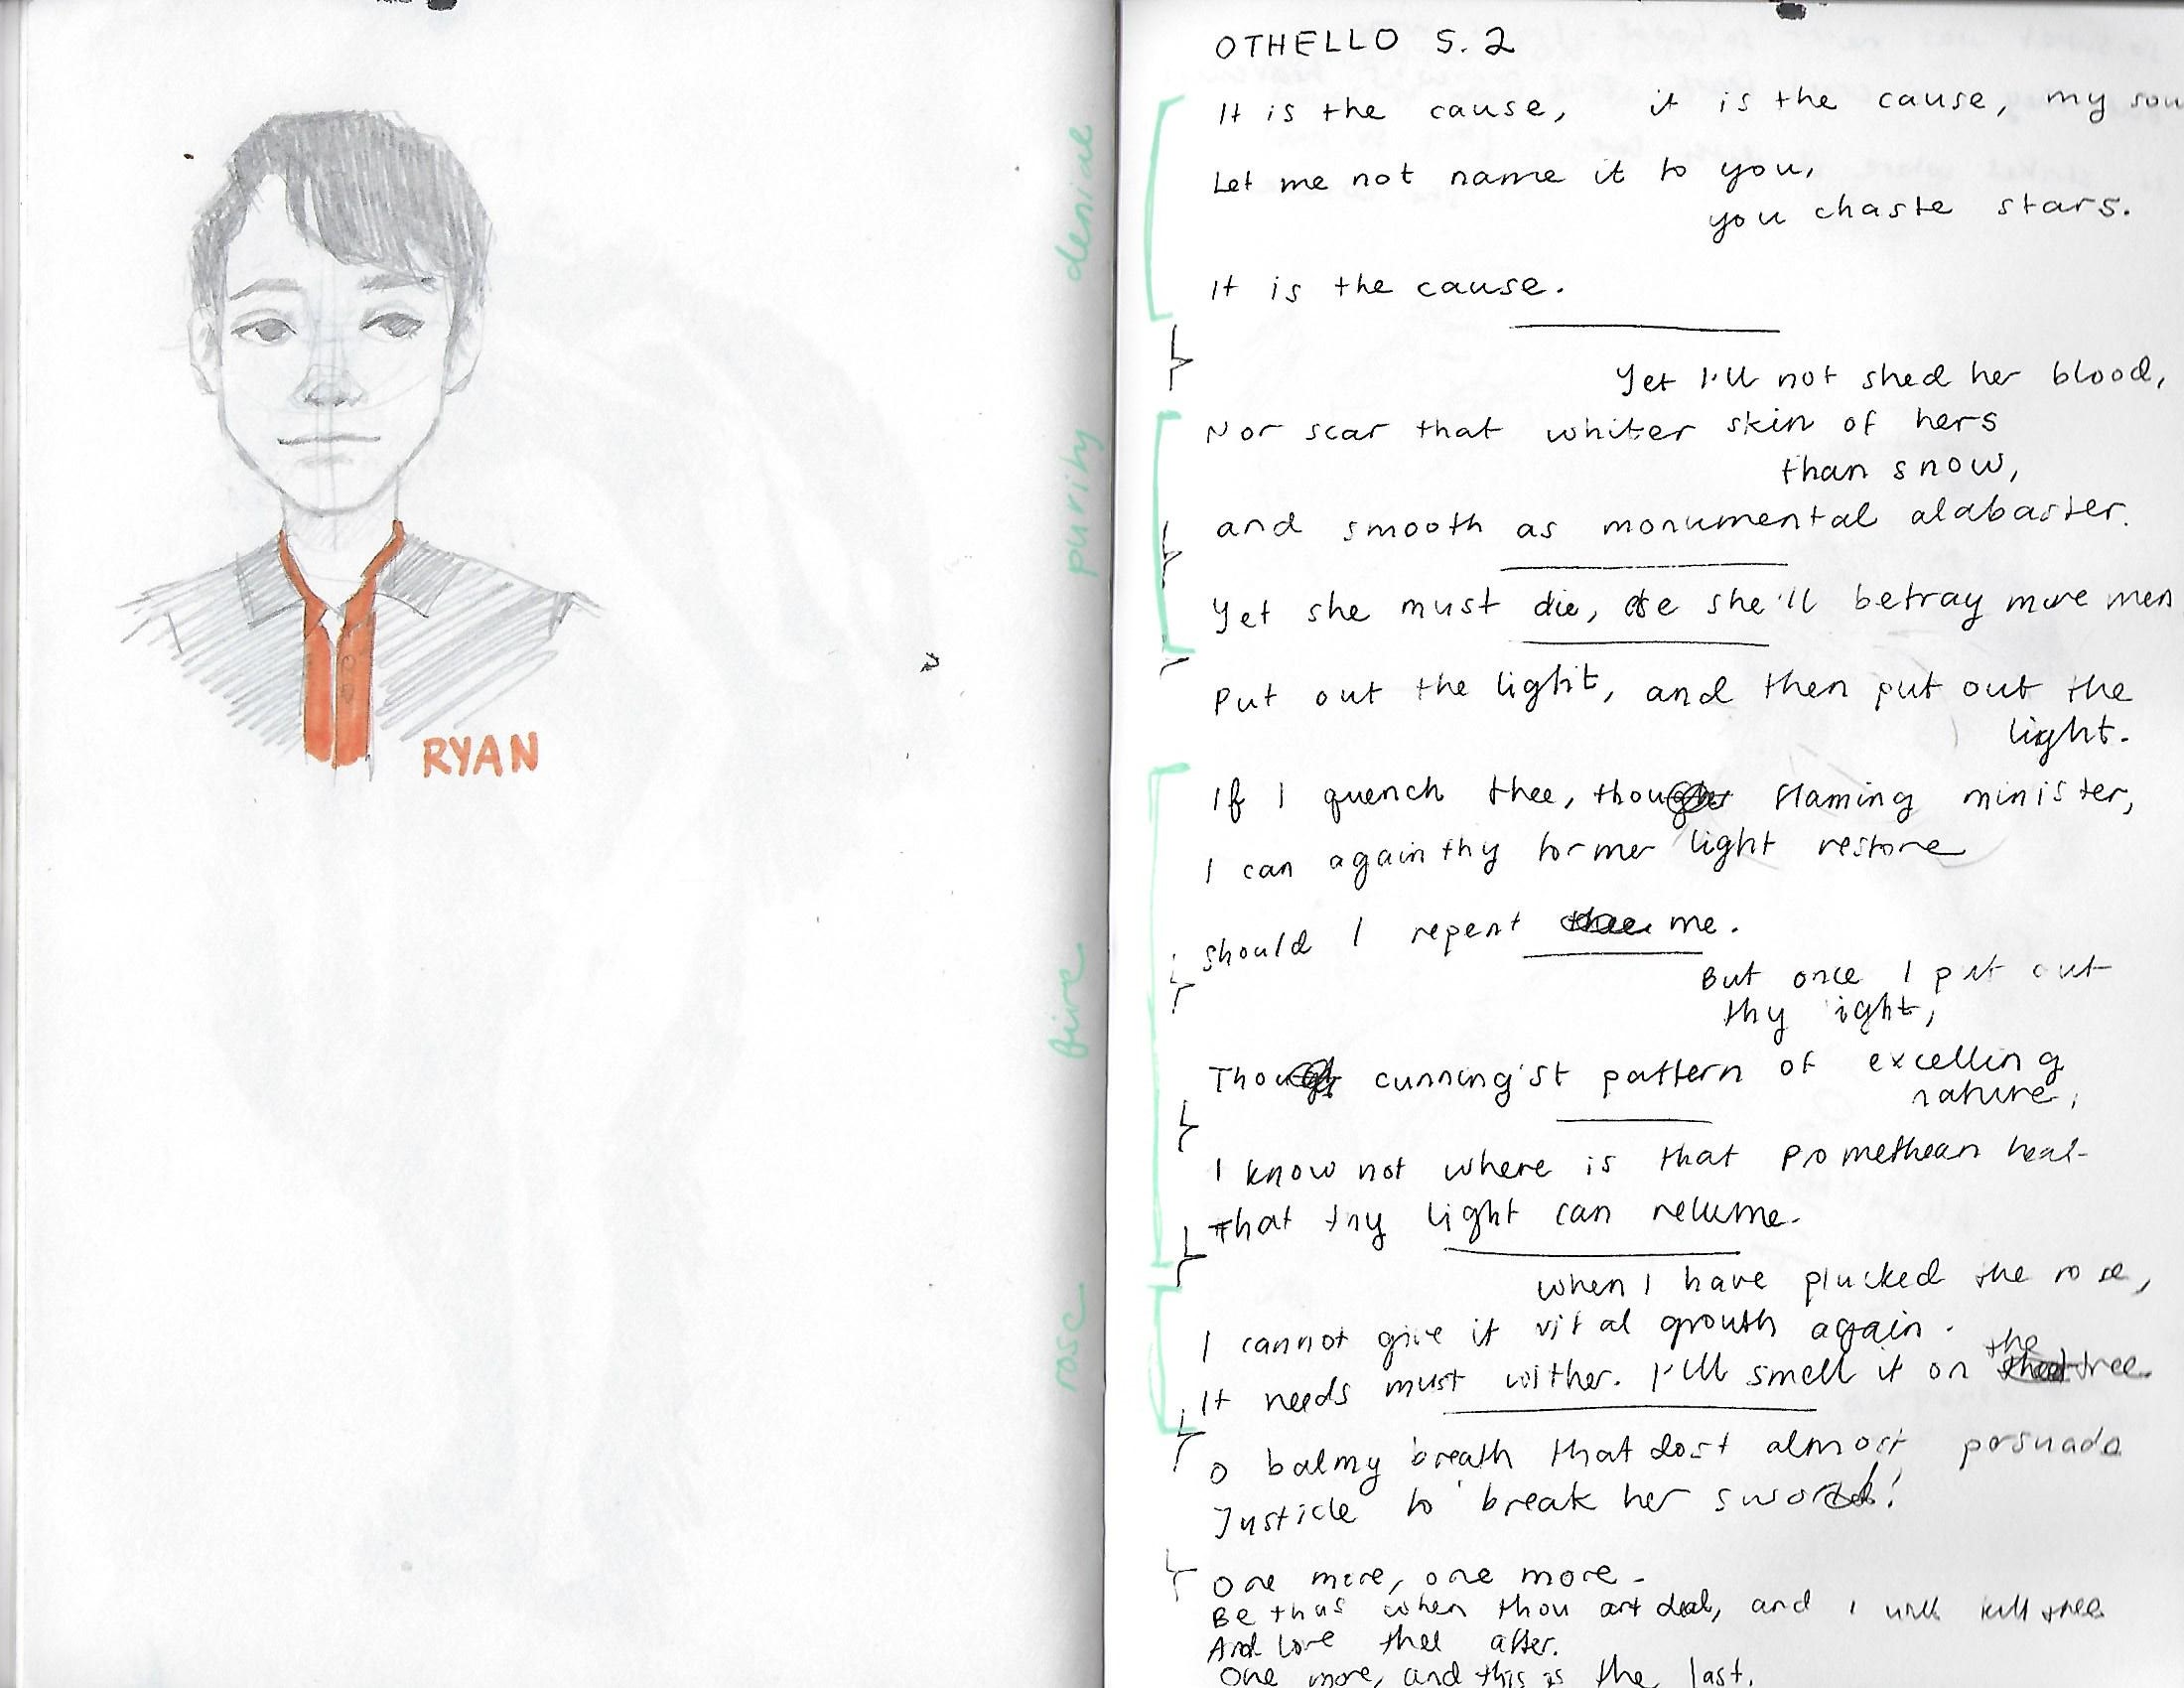 RYAN
denial
purity
fire
rose
OTHELLO 5.2
It is the cause, it is the cause, my sou
Let me not name it to you,
you chaste stars.
It is the cause.
Yet I'll not shed her blood,
Nor scar that whiter skin of hers
than snow,
and smooth as monumental alabaster.
Yet she must die, else she'll betray more men
Put out the light, and then put out the
light.
If I quench thee, thou flaming minister,
I can again thy former light restore
should I repent me.
But once I put out
thy light,
Thou cunning'st pattern of excelling
nature,
I know not where is that Promethean heat
That thy light can relume.
When I have plucked the rose,
I cannot give it vital growth again.
the
It needs must wither. I'll smell it on tree.
O balmy breath that dost almost persuade
Justicle to break her sword!
One more, one more.
Be thus when thou art dead, and I will kill thee
And love thee after.
One more, and this is the last.